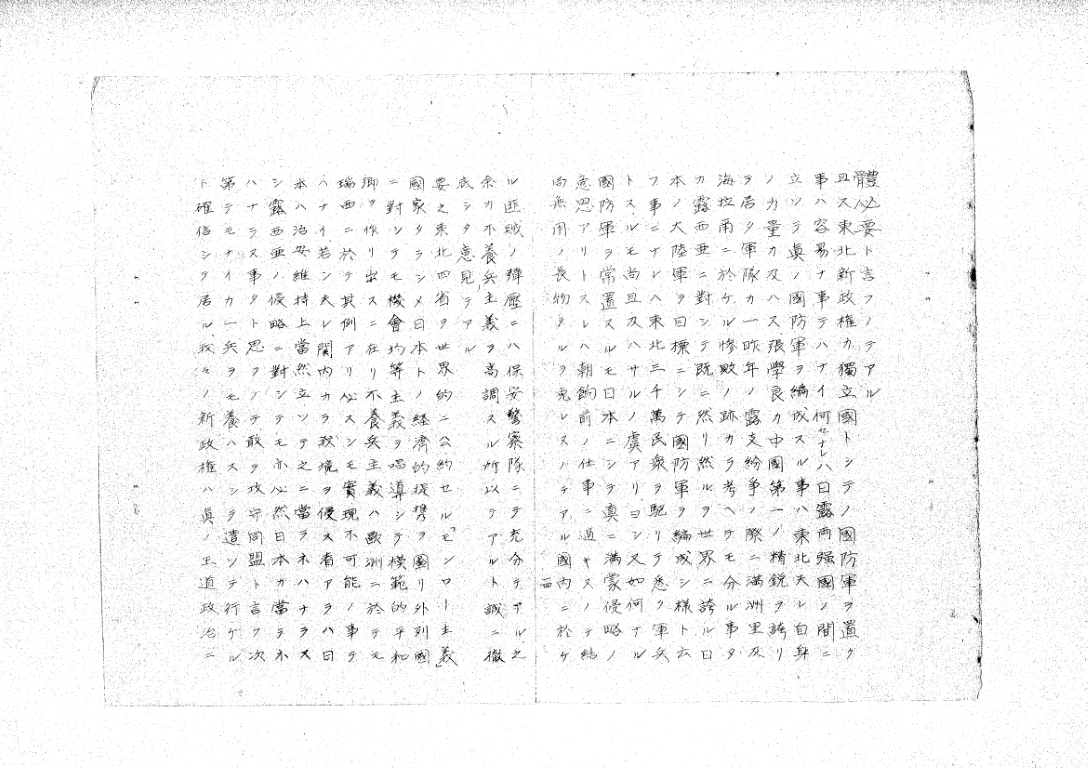 體必要ト言フノテアル
且ス東北新政權カ獨立國トシテノ國防軍ヲ置ク
事ハ容易ナ事テハナイ何セナレハ日露両强國ノ間ニ
立ツテ眞ノ國防軍ヲ編成スル事ハ東北夫レ自身
ノ力量カ及ハス張學良カ中國第一ノ精鋭ヲ誇リ
ヲ居タ軍隊カ一昨年ノ露支紛爭ノ際ニ満洲里及
海拉甫ニ於ケル慘敗ノ跡カラ考ヘテモ分ル事タ
カ露西亜ニ對シテ既ニ然リ然ルヲ世界ニ誇ル日
本ノ大陸軍ヲ目標ニシテ國防軍ヲ編成シ様ト云
フ事ニナレハ東北三千萬民衆ヲ駆リテ悉ク軍兵
トスルモ尚且及ハサルノ虞アリヨシ如何ナル
國防軍ヲ常置スルモ日本ニシテ眞ニ満蒙侵略ノ
意思アリトスレハ朝飽前ノ仕事ニ過キスノテ結
局無用ノ長物タルヲ免レスノテアル國内ニ於ケ
ル匪賊ノ弾壓ニハ保安警察隊ニテ充分テアル之
余リ不養兵主義ヲ高調スル所以テアルト誠ニ徹
底シタ意見テアル
要之東北四省ヲ世界的ニ公約セル「モンロー主義」
國家タラシメ日本トノ経濟的提携ヲ圖リ外列國
ニ對シテモ機會均等主義ヲ唱導シテ模範的平和
郷ヲ作リ出スニ在リ不養兵主義ハ歐洲ニ於テモ
瑞西ニ於テ其例アリ必スシモ實現不可能ノ事テ
ハナイ若夫レ関内カラ我境ヲ侵ス者アラハ日
本ハ治安維持上當然立ツテ之ニ當ラネハナラス
シ露西亜ノ侵略ニ對シテモ亦必然日本カ當ラネ
ハナラス事タト思フノテ敢ヲ攻守同盟ト言フ次
第テモナイカート兵ヲモ養ハスシテ遣ツテ行ケル
ト確信シヲ居ル我々ノ新政權ハ眞ノ王道政治ニ